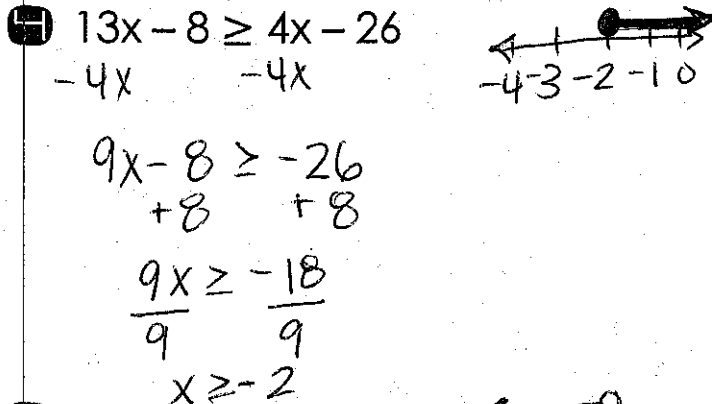 H 13x – 8 ≥ 4x – 26
-4x -4x
-4 -3 -2 -1 0
9x - 8 ≥ -26
+8 +8
9x ≥ -18
9 9
x ≥ -2